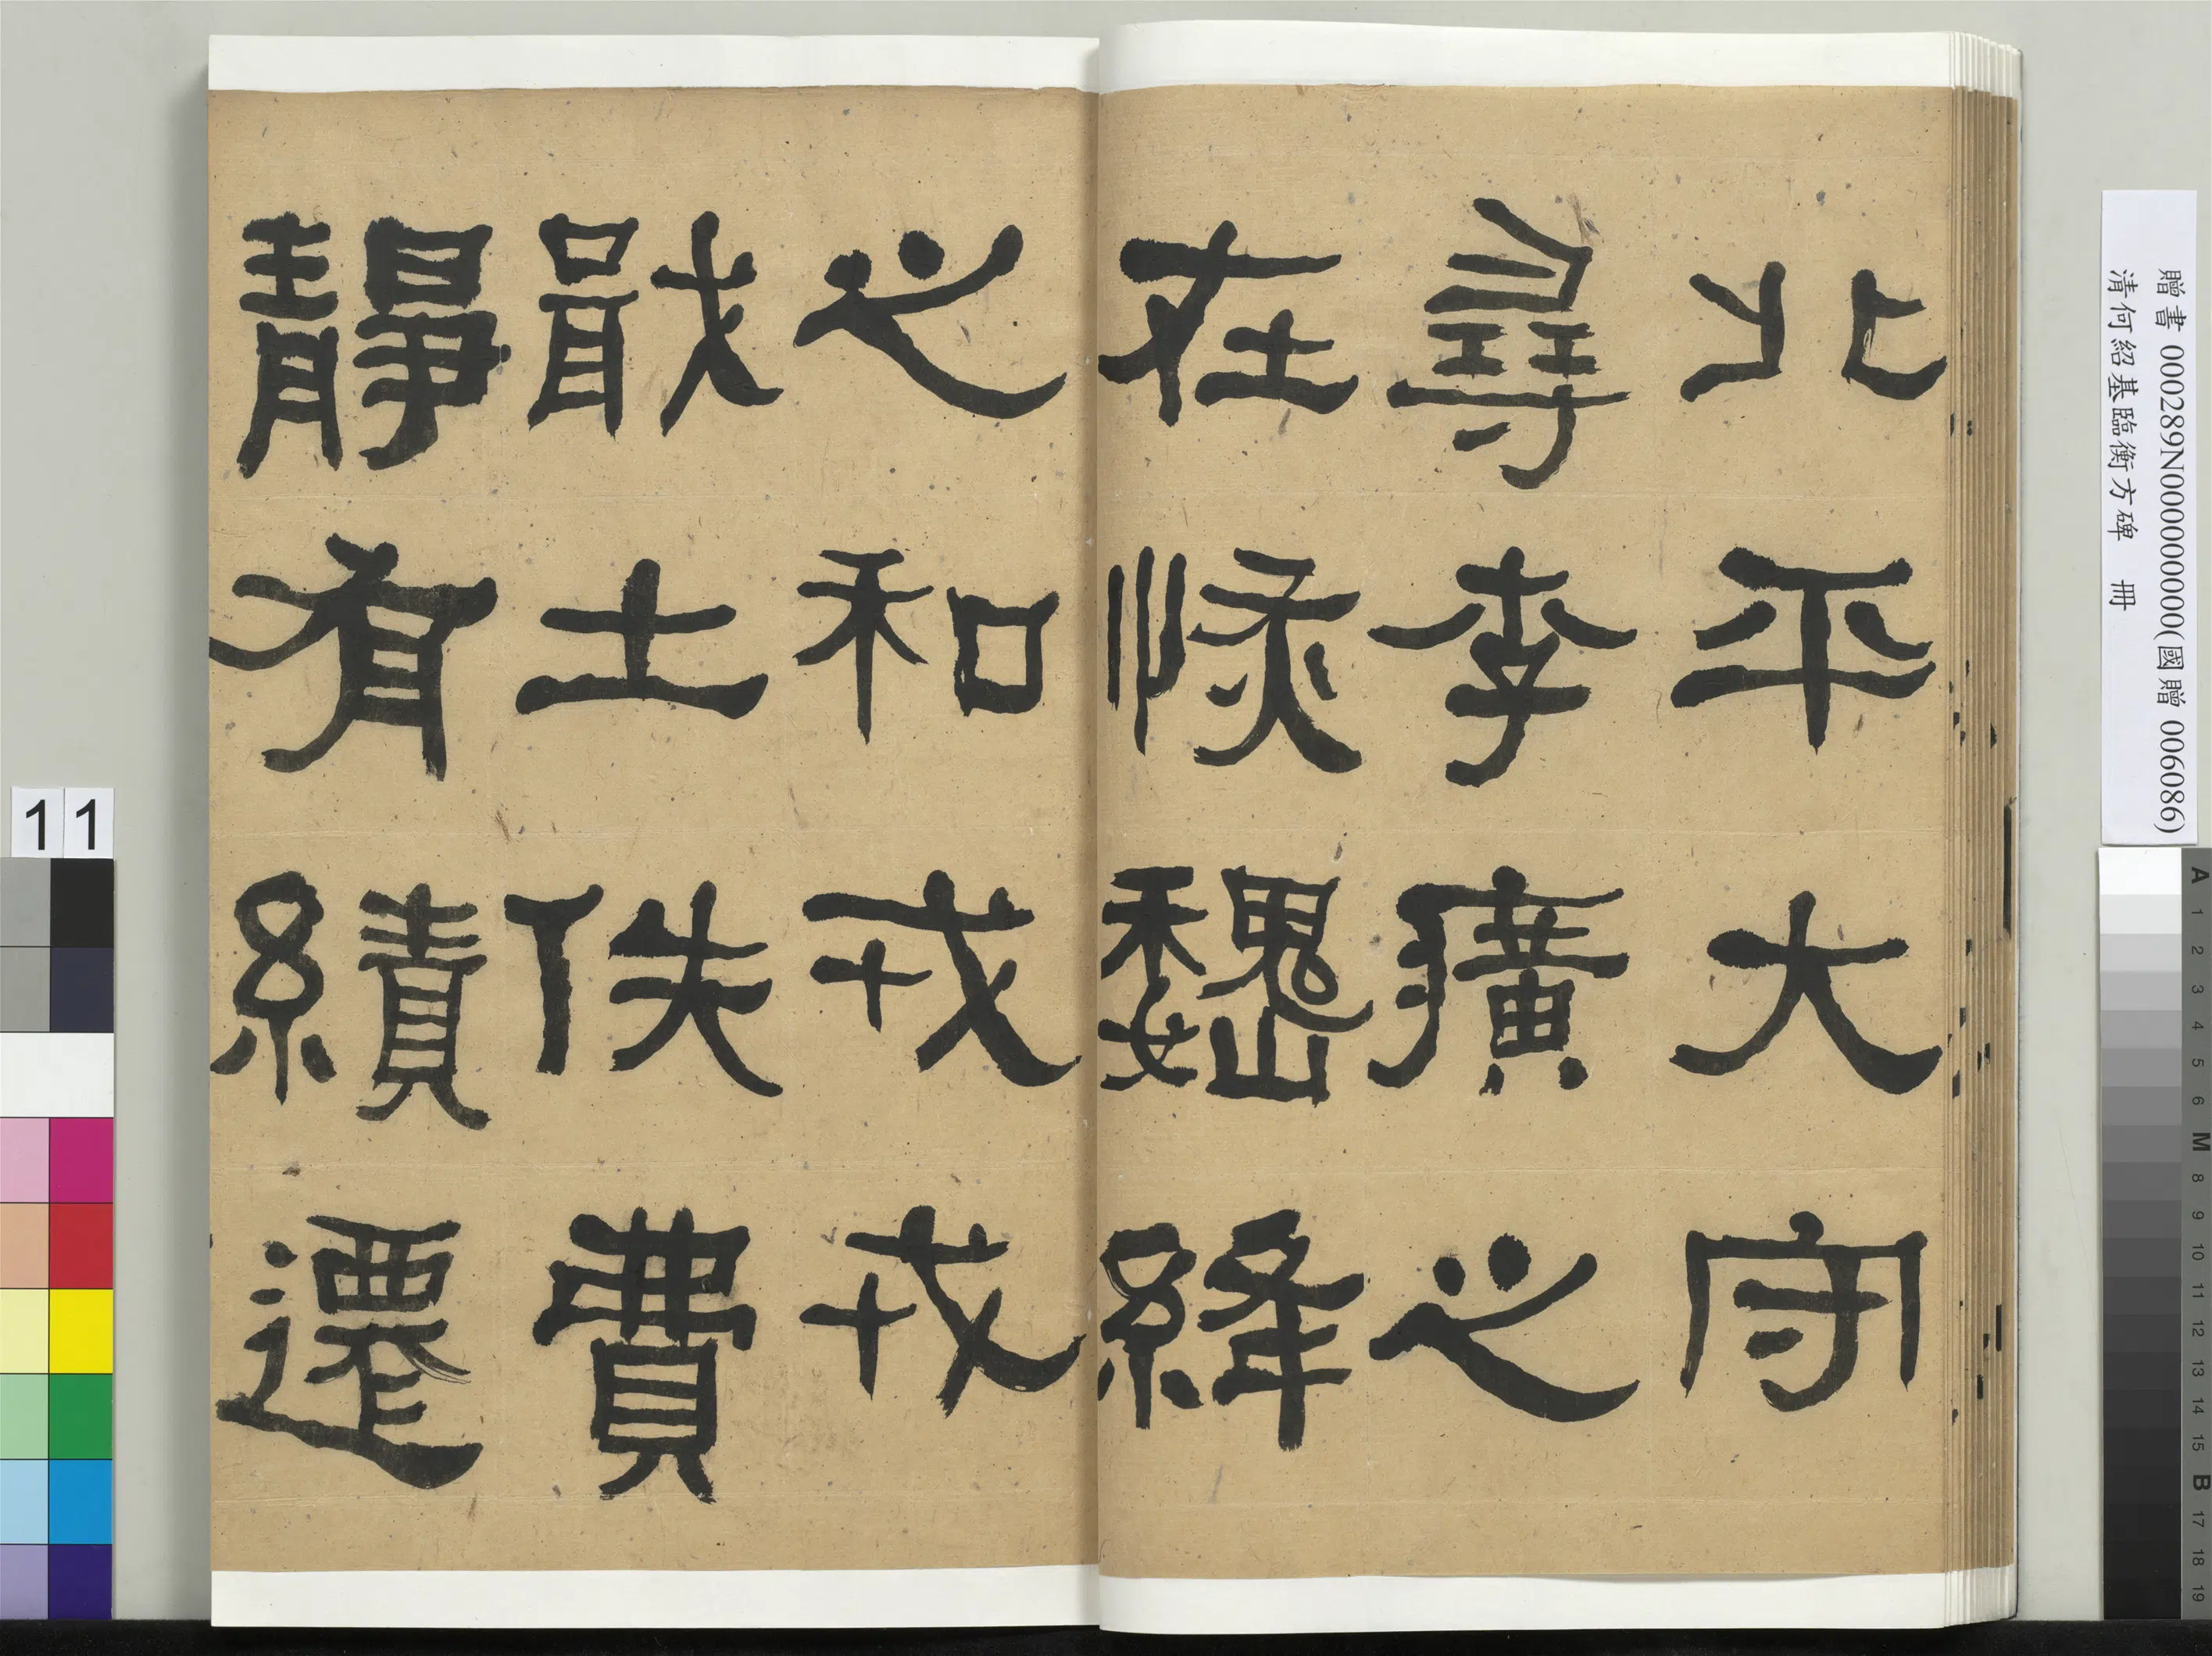 北平大守
尋李廣之
在恢魏絳
之和戎戎
戢士佚費
靜有績遷
贈書 000289N000000000(國贈 006086)
清何紹基臨衡方碑 冊
11
A 1 2 3 4 5 6 M 8 9 10 11 12 13 14 15 B 17 18 19